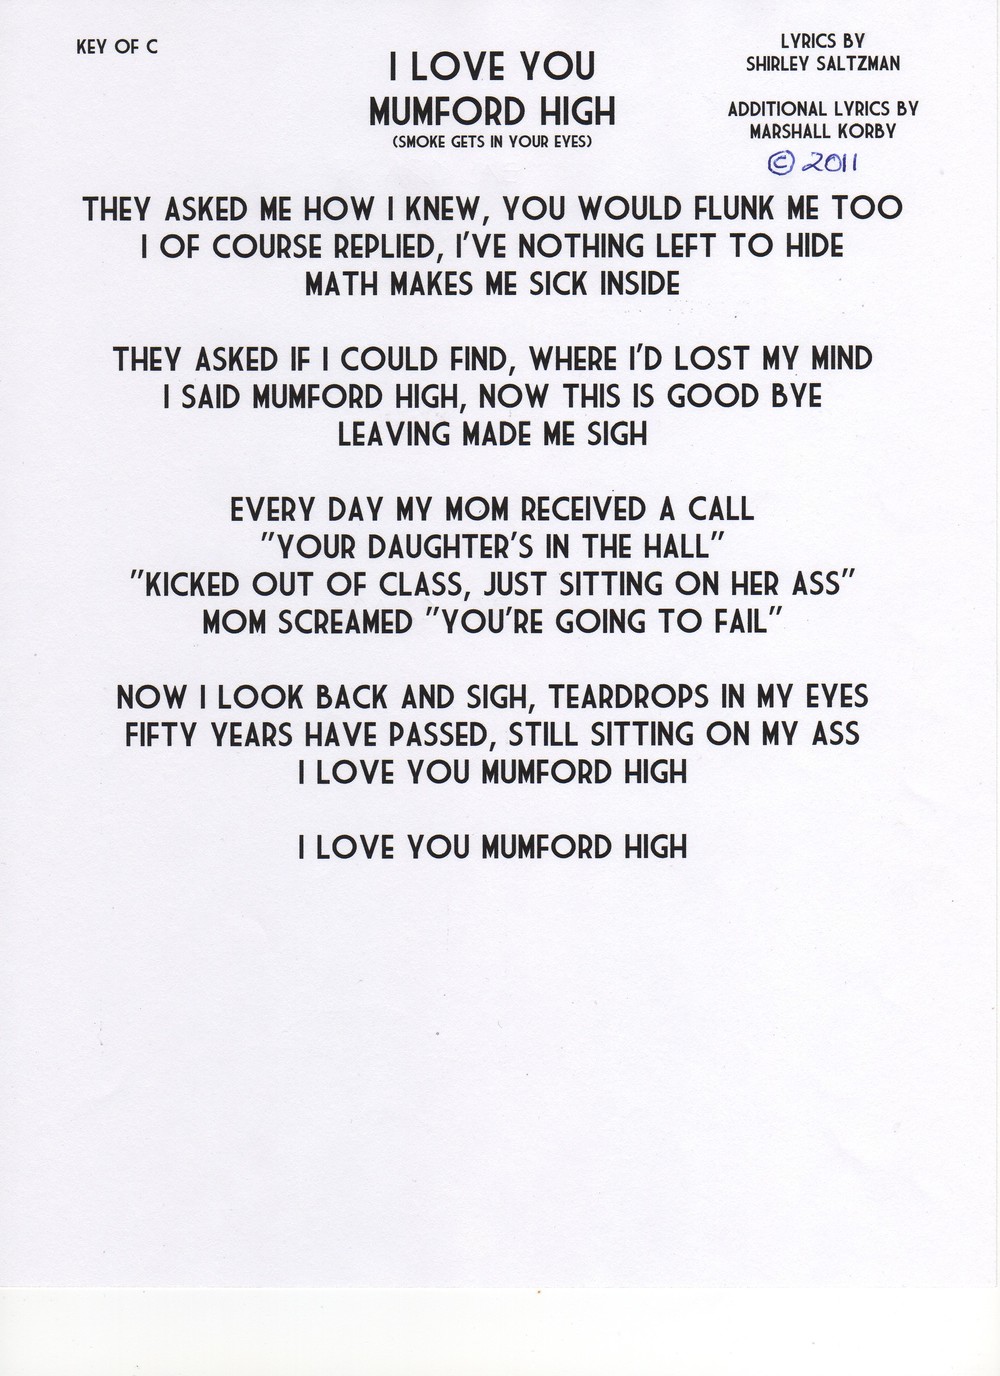 KEY OF C
I LOVE YOU
MUMFORD HIGH
(SMOKE GETS IN YOUR EYES)
LYRICS BY
SHIRLEY SALTZMAN
ADDITIONAL LYRICS BY
MARSHALL KORBY
© 2011
THEY ASKED ME HOW I KNEW, YOU WOULD FLUNK ME TOO
I OF COURSE REPLIED, I'VE NOTHING LEFT TO HIDE
MATH MAKES ME SICK INSIDE
THEY ASKED IF I COULD FIND, WHERE I'D LOST MY MIND
I SAID MUMFORD HIGH, NOW THIS IS GOOD BYE
LEAVING MADE ME SIGH
EVERY DAY MY MOM RECEIVED A CALL
"YOUR DAUGHTER'S IN THE HALL"
"KICKED OUT OF CLASS, JUST SITTING ON HER ASS"
MOM SCREAMED "YOU'RE GOING TO FAIL"
NOW I LOOK BACK AND SIGH, TEARDROPS IN MY EYES
FIFTY YEARS HAVE PASSED, STILL SITTING ON MY ASS
I LOVE YOU MUMFORD HIGH
I LOVE YOU MUMFORD HIGH